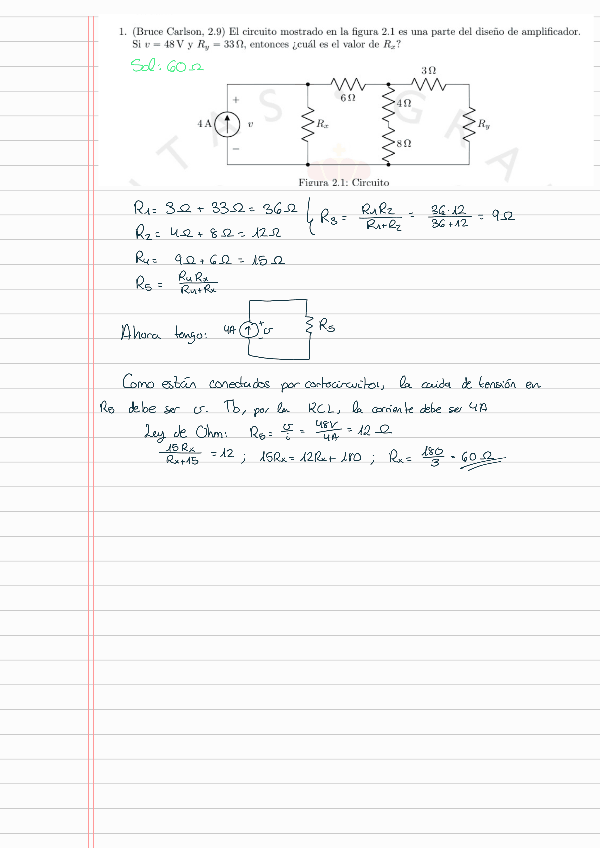 1. (Bruce Carlson, 2.9) El circuito mostrado en la figura 2.1 es una parte del diseño de amplificador.
Si v = 48 V y Ry = 33 Ω, entonces ¿cuál es el valor de Rx?
Sol: 60 Ω
3 Ω
6 Ω
4 Ω
+
4 A
v
Rx
Ry
8 Ω
−
Figura 2.1: Circuito
R1 = 3Ω + 33Ω = 36Ω
R2 = 4Ω + 8Ω = 12Ω
R3 = R1R2/R1+R2 = 36·12/36+12 = 9Ω
R4 = 9Ω + 6Ω = 15Ω
R5 = R4Rx/R4+Rx
Ahora tengo: 4A + v - R5
Como están conectados por cortocircuitos, la caida de tensión en
R5 debe ser v. Tb, por la RCL, la corriente debe ser 4A
Ley de Ohm: R5 = v/i = 48V/4A = 12 Ω
15Rx/Rx+15 = 12 ; 15Rx = 12Rx + 180 ; Rx = 180/3 = 60Ω